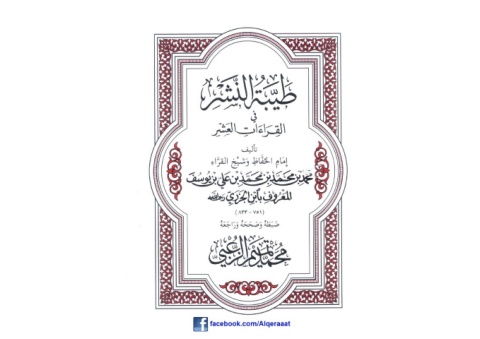 طَيِّبَةُ النَّشْرِ
فِي
القِرَاءَاتِ العَشْرِ
تأليف
إِمَامِ الحُفَّاظِ وَشَيْخِ القُرَّاءِ
مُحَمَّدِ بْنِ مُحَمَّدِ بْنِ مُحَمَّدِ بْنِ عَلِيِّ بْنِ يُوسُفَ
المَعْرُوفِ بِابْنِ الجَزَرِيِّ
(٧٥١ - ٨٣٣)
ضَبَطَهُ وَصَحَّحَهُ وَرَاجَعَهُ
محمد تميم الزعبي
facebook.com/Alqeraaat